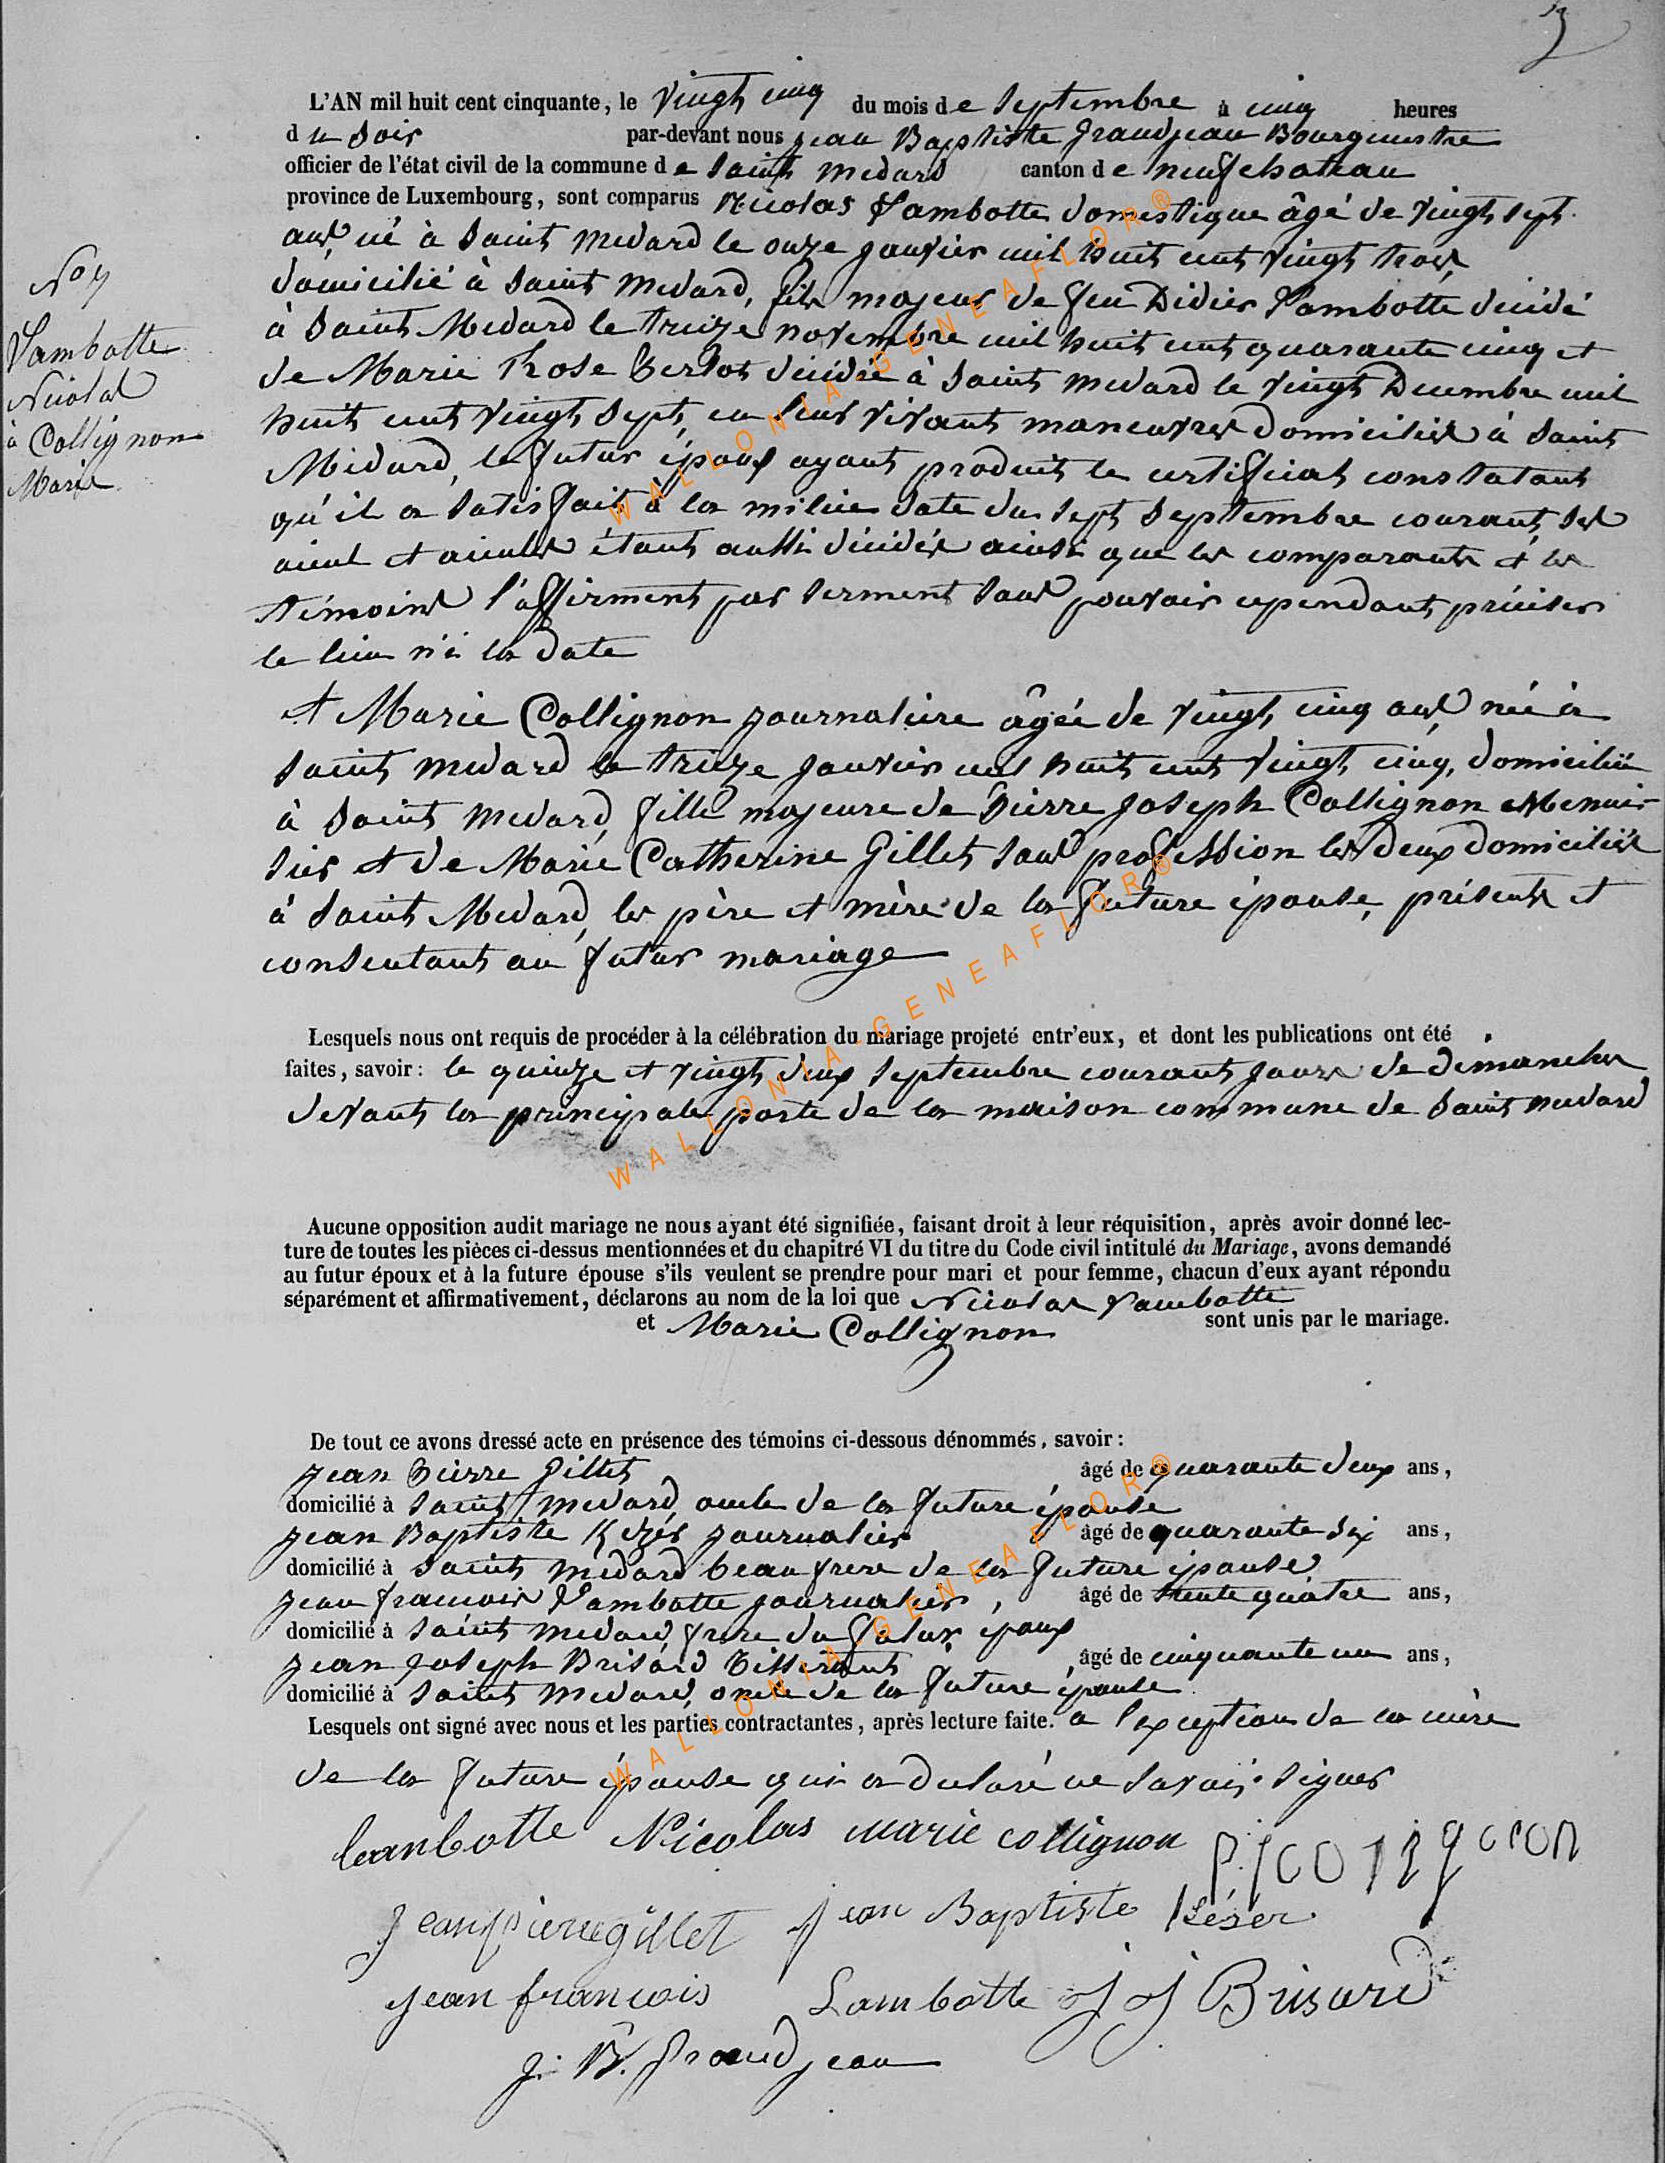 3
L'AN mil huit cent cinquante, le vingt cinq du mois de Septembre à cinq heures
du Soir par-devant nous jean Baptiste Grandjean Bourguestre
officier de l'état civil de la commune de Saint Medard canton de neufchateau
province de Luxembourg, sont comparus Nicolas Lambotte domestique âgé de vingt sept
ans né à Saint Medard le onze janvier mil huit cent vingt trois,
domicilié à Saint Medard, fils majeur de feu Didier Lambotte décédé
à Saint Medard le treize novembre mil huit cent quarante cinq et
de Marie Rose décédée à Saint Medard le vingt Decembre mil
huit cent vingt sept, en leur vivant maneuvres domiciliés à Saint
Médard, le futur époux ayant produit le certificat constatant
qu'il a satisfait à la milice date du sept Septembre courant, ses
aieul et aieules étant aussi décédés ainsi que les comparants et les
témoins l'affirment par serment sans pouvoir cependant préciser
le lieu n'i la date
No 7
Lambotte
Nicolas
à Collignon
Marie
et Marie Collignon journalière âgée de vingt cinq ans née à
Saint Medard le treize janvier mil huit cent vingt cinq, domiciliée
à Saint Medard, fille majeure de Pierre joseph Collignon Menui-
sier et de Marie Catherine Gillet sans profession les deux domiciliés
à Saint Medard, les père et mère de la future épouse, présents et
consentant au futur mariage
Lesquels nous ont requis de procéder à la célébration du mariage projeté entr'eux, et dont les publications ont été
faites, savoir : le quinze et vingt deux Septembre courant jours de dimanches
devant la principale porte de la maison commune de Saint Medard
Aucune opposition audit mariage ne nous ayant été signifiée, faisant droit à leur réquisition, après avoir donné lec-
ture de toutes les pièces ci-dessus mentionnées et du chapitré VI du titre du Code civil intitulé du Mariage, avons demandé
au futur époux et à la future épouse s'ils veulent se prendre pour mari et pour femme, chacun d'eux ayant répondu
séparément et affirmativement, déclarons au nom de la loi que Nicolas Lambotte
et Marie Collignon sont unis par le mariage.
De tout ce avons dressé acte en présence des témoins ci-dessous dénommés, savoir :
jean Pierre Gillet âgé de quarante deux ans,
domicilié à Saint Medard, oncle de la future épouse
jean Baptiste Kézér journalier âgé de quarante Six ans,
domicilié à Saint Medard beau frere de la future épouse
jean francois Lambotte journalier, âgé de trente quatre ans,
domicilié à Saint Medard, frere du futur époux
jean joseph Brisard Tisserant, âgé de cinquante un ans,
domicilié à Saint Medard, oncle de la future épouse
Lesquels ont signé avec nous et les parties contractantes, après lecture faite. a l'exception de la mère
de la future épouse qui a declaré ne savoir signer
lambotte Nicolas marie collignon P J collignon
jean pierre gillet jean Baptiste Késer
jean francois Lambotte J J Brisard
J. B. Grandjean
WALLONIA-GENEAFLOR®
WALLONIA-GENEAFLOR®
WALLONIA-GENEAFLOR®